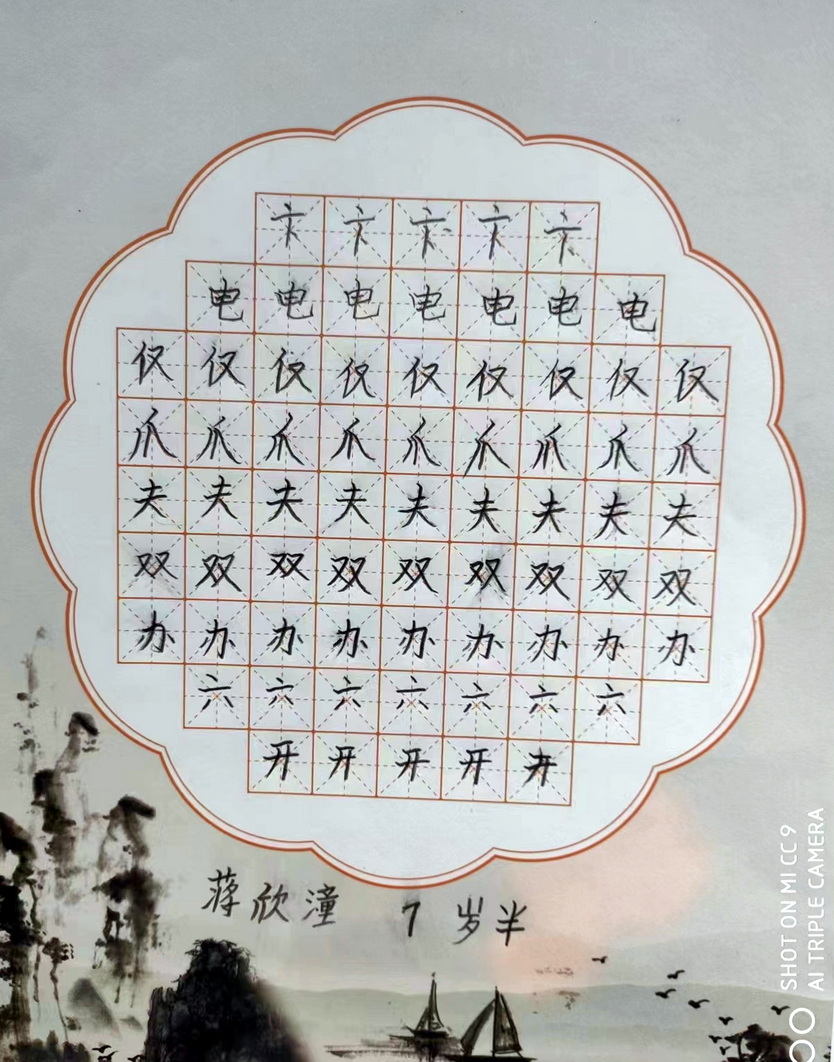 卞卞卞卞卞
电电电电电电电
仅仅仅仅仅仅仅仅仅
爪爪爪爪爪爪爪爪爪
夫夫夫夫夫夫夫夫夫
双双双双双双双双双
办办办办办办办办办
六六六六六六六
开开开开开
蒋欣潼 7岁半
SHOT ON MI CC 9
AI TRIPLE CAMERA